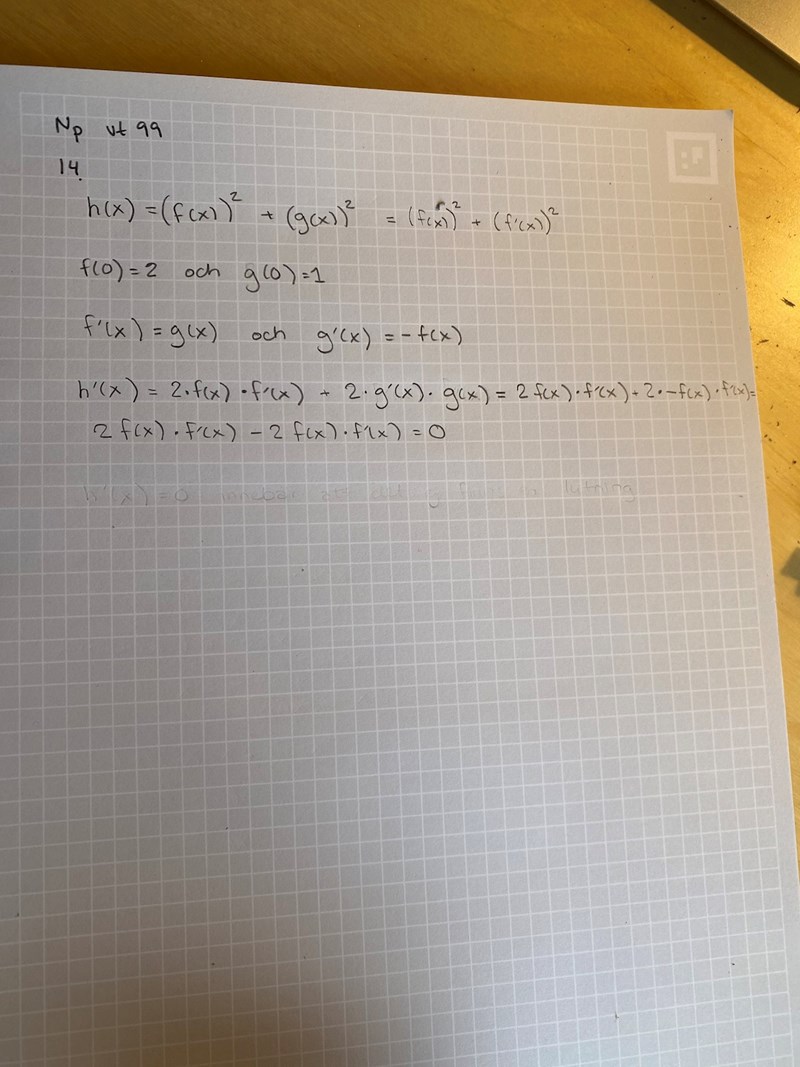 Np vt 99
14.
h(x) = (f(x))² + (g(x))² = (f(x))² + (f'(x))²
f(0) = 2 och g(0) = 1
f'(x) = g(x) och g'(x) = -f(x)
h'(x) = 2·f(x)·f'(x) + 2·g'(x)·g(x) = 2f(x)·f'(x) + 2·-f(x)·f'(x) =
2f(x)·f'(x) - 2f(x)·f'(x) = 0
h'(x) = 0 lutning